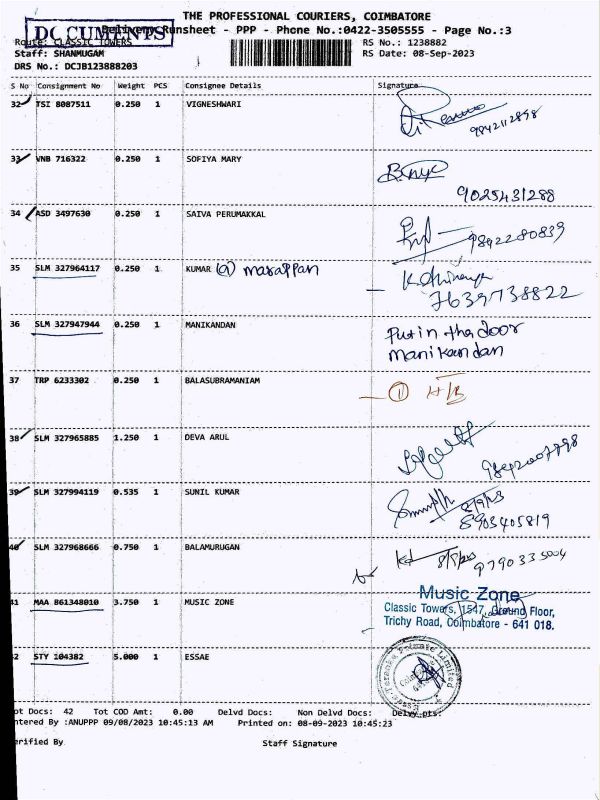 THE PROFESSIONAL COURIERS, COIMBATORE
DOCUMENTS
Delivery Runsheet - PPP - Phone No.:0422-3505555 - Page No.:3
Route: CLASSIC TOWERS RS No.: 1238882
Staff: SHANMUGAM RS Date: 08-Sep-2023
DRS No.: DCJB123888203
S No Consignment No Weight PCS Consignee Details Signature
32 TSI 8087511 0.250 1 VIGNESHWARI
9842112898
33 VNB 716322 0.250 1 SOFIYA MARY
9025431288
34 ASD 3497630 0.250 1 SAIVA PERUMAKKAL
9892280839
35 SLM 327964117 0.250 1 KUMAR @ marappan
7639738822
36 SLM 327947944 0.250 1 MANIKANDAN Put in the door
manikandan
37 TRP 6233302 0.250 1 BALASUBRAMANIAM ① H/B
38 SLM 327965885 1.250 1 DEVA ARUL
39 SLM 327994119 0.535 1 SUNIL KUMAR
8903405819
40 SLM 327968666 0.750 1 BALAMURUGAN
Music Zone
41 MAA 861348010 3.750 1 MUSIC ZONE Classic Towers, 1547, Ground Floor,
Trichy Road, Coimbatore - 641 018.
42 STY 104382 5.000 1 ESSAE
Private Limited
ot Docs: 42 Tot COD Amt: 0.00 Delvd Docs: Non Delvd Docs: Delvy pts:
ntered By :ANUPPP 09/08/2023 10:45:13 AM Printed on: 08-09-2023 10:45:23
erified By Staff Signature